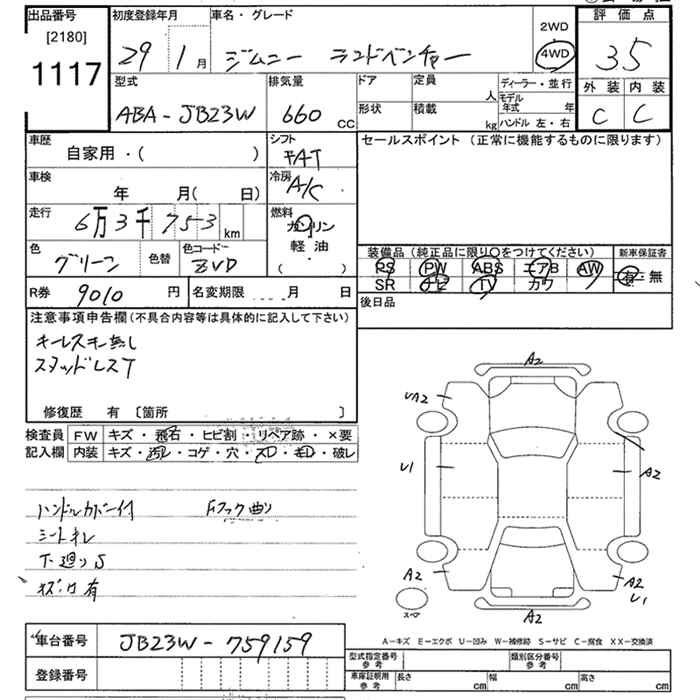 出品番号
[2180]
1117
初度登録年月
29 1 月
車名・グレード
ジムニー ランドベンチャー
2WD
・
4WD
評価点
3.5
外装 内装
C C
型式
ABA-JB23W
排気量
660 CC
ドア
定員
人
形状
積載
kg
ディーラー・並行
モデル年式 年
ハンドル 左・右
車歴
自家用・( )
シフト
FAT
車検
年 月( 日)
冷房
A/C
走行
6万3千753 km
燃料
ガソリン
軽油
( )
色
グリーン
色替
色コード
ZVD
R券 9010 円
名変期限 月 日
セールスポイント (正常に機能するものに限ります)
装備品 (純正品に限り〇をつけてください)
PS PW ABS エアB AW
SR ナビ TV カワ
新車保証書
有・無
後日品
注意事項申告欄 (不具合内容等は具体的に記入して下さい)
キーレスキー無し
スタッドレスT
修復歴 有 〔箇所 〕
検査員記入欄
FW キズ・飛石・ヒビ割・リペア跡・×要
内装 キズ・汚レ・コゲ・穴・スレ・キレ・破レ
ハンドルカバー付 Fフック曲り
シートキレ
下廻りS
A2
UA2
U1
A2
A2
A2
U1
A2
スペア
A-キズ E-エクボ U-凹み W-補修跡 S-サビ C-腐食 XX-交換済
車台番号 JB23W-759159
登録番号
型式指定番号 参考
類別区分番号 参考
車庫証明用 参考
長さ cm
幅 cm
高さ cm